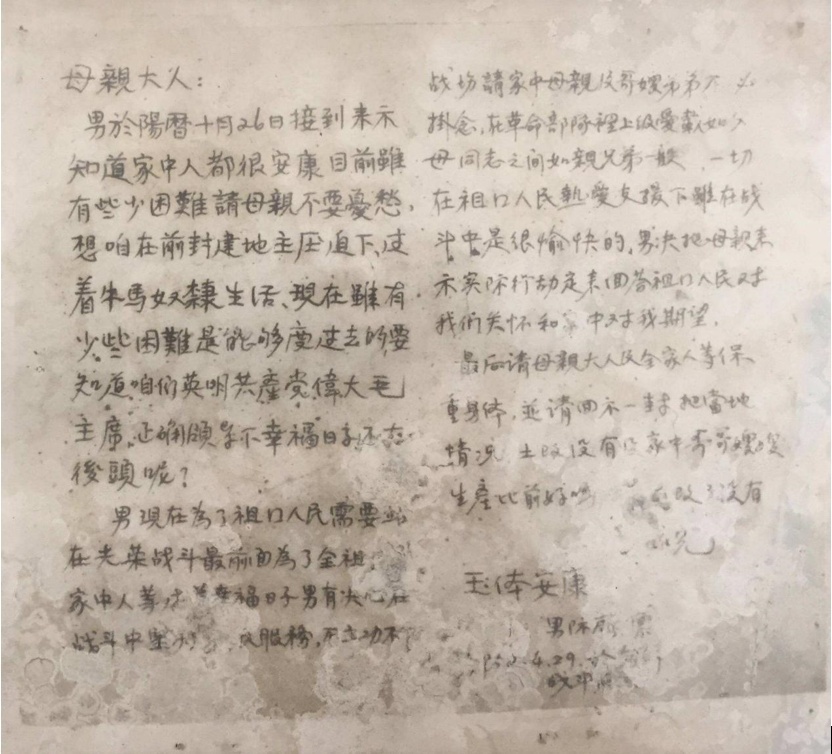 母親大人：
男於陽曆十月26日接到来示
知道家中人都很安康目前雖
有些少困難請母親不要憂愁，
想咱在前封建地主压迫下、过
着牛馬奴隸生活、現在雖有
少些困難是能够度过去的要
知道咱们英明共產党偉大毛
主席，正确領导下幸福日子还在
後頭呢？
男現在為了祖口人民需要站
在光荣战斗最前面為了全祖
家中人等 幸福日子男有决心在
战斗中坚 服務，不立功不
战场請家中母親及哥嫂弟弟不必
掛念，在革命部隊裡上级愛戴如父
母同志之间如親兄弟一般 一切
在祖口人民熱愛支援下雖在战
斗中是很愉快的，男决把母親来
示实际行动定来回答祖口人民对
我們关怀和家中对我期望，
最后请母親大人及全家人等保
重身体，並请回示一封把當地
情况 土改没有 家中哥嫂
生產比前好嗎 改了没有
玉体安康
男
4.29.